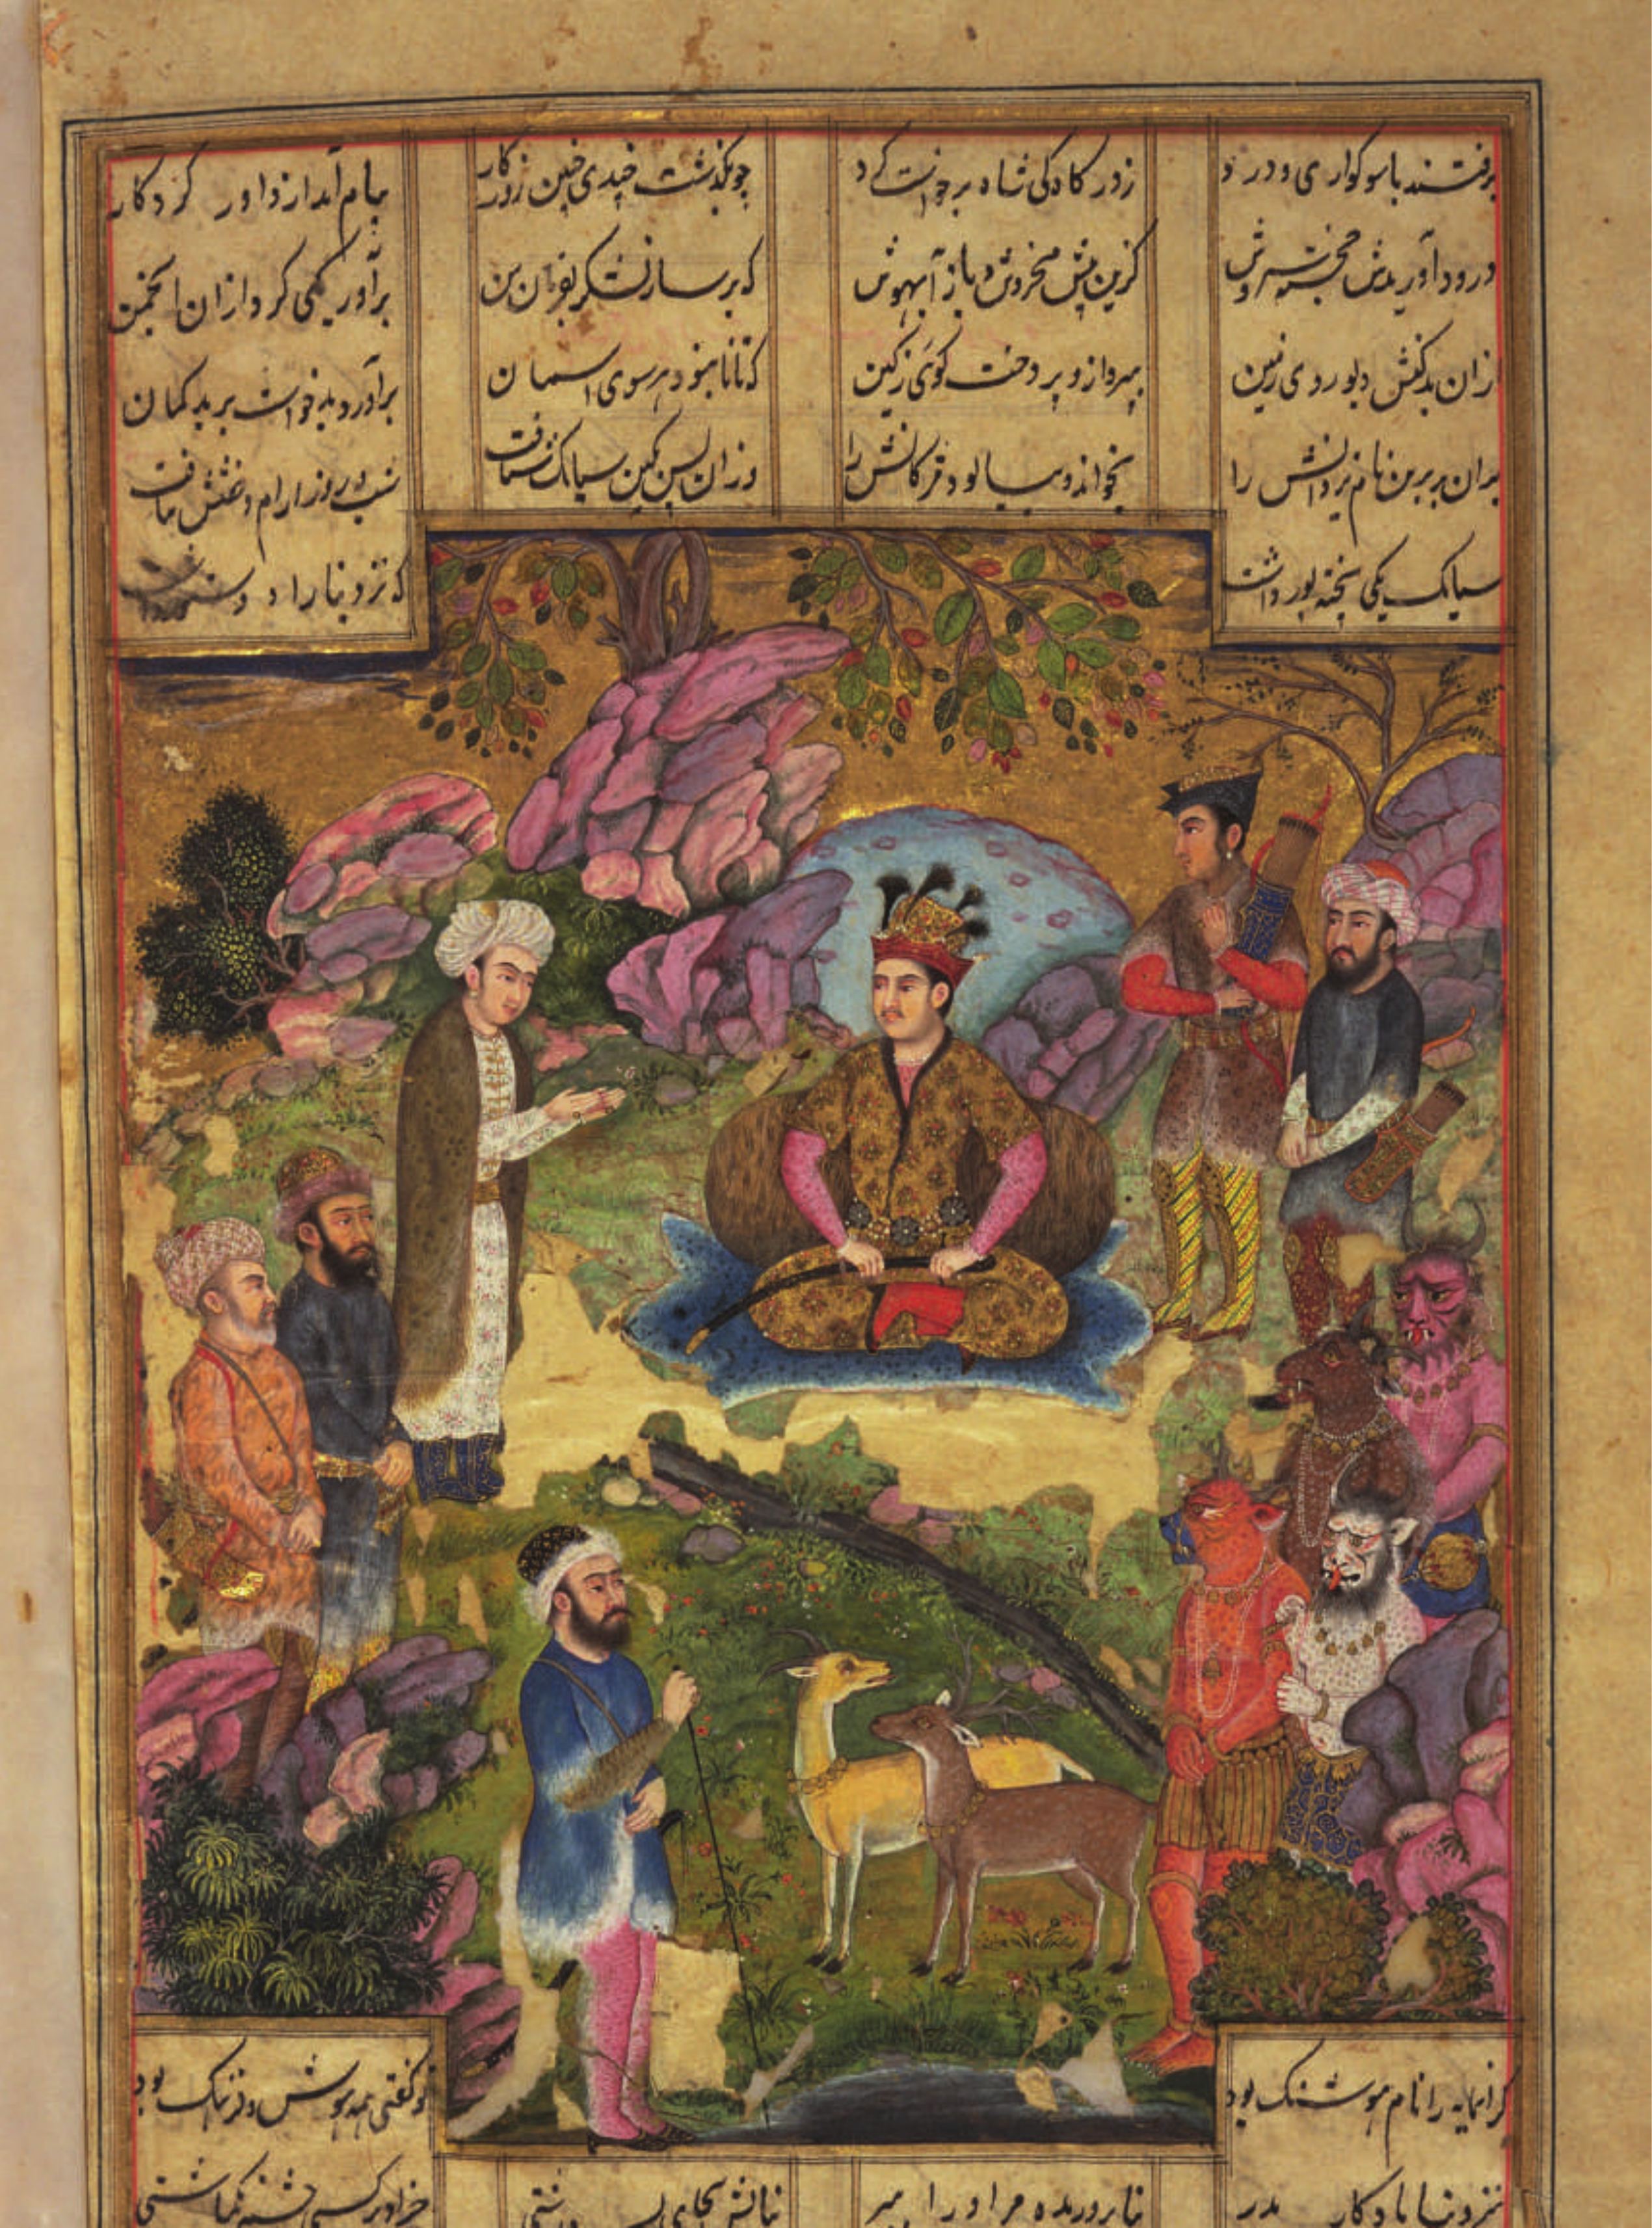 برفتند با سوکواری و درد ز درکاه کی شاه برخواست کرد چو بگذشت چندی چنین روزکار پیام آمد از داور کردکار
درود آوریدش خجسته سروش کزین بیش مخروش و باز آر هوش که برساز لشکر بفرمان من برآور یکی کرد ازان انجمن
ازان بدکنش دیو روی زمین بپرداز و پردخت ز کین سوی آسمان برآورد و بد خواست بر بدکمان
بران برترین نام یزدانش را بخواند و بپالود مژکانش را وزان پس بکین سیامک شتافت شب و روز آرام و خفتن نیافت
سیامک یکی خجسته پور داشت که نزد نیا راد و دستور داشت
کرانمایه را نام هوشنک بود تو کفتی همه هوش و فرهنک بود
بنزد نیا یادکار پدر نیا پروریده مر او را ببر نیایش بجای پسر داشتی جز او بر کسی چشم نکماشتی